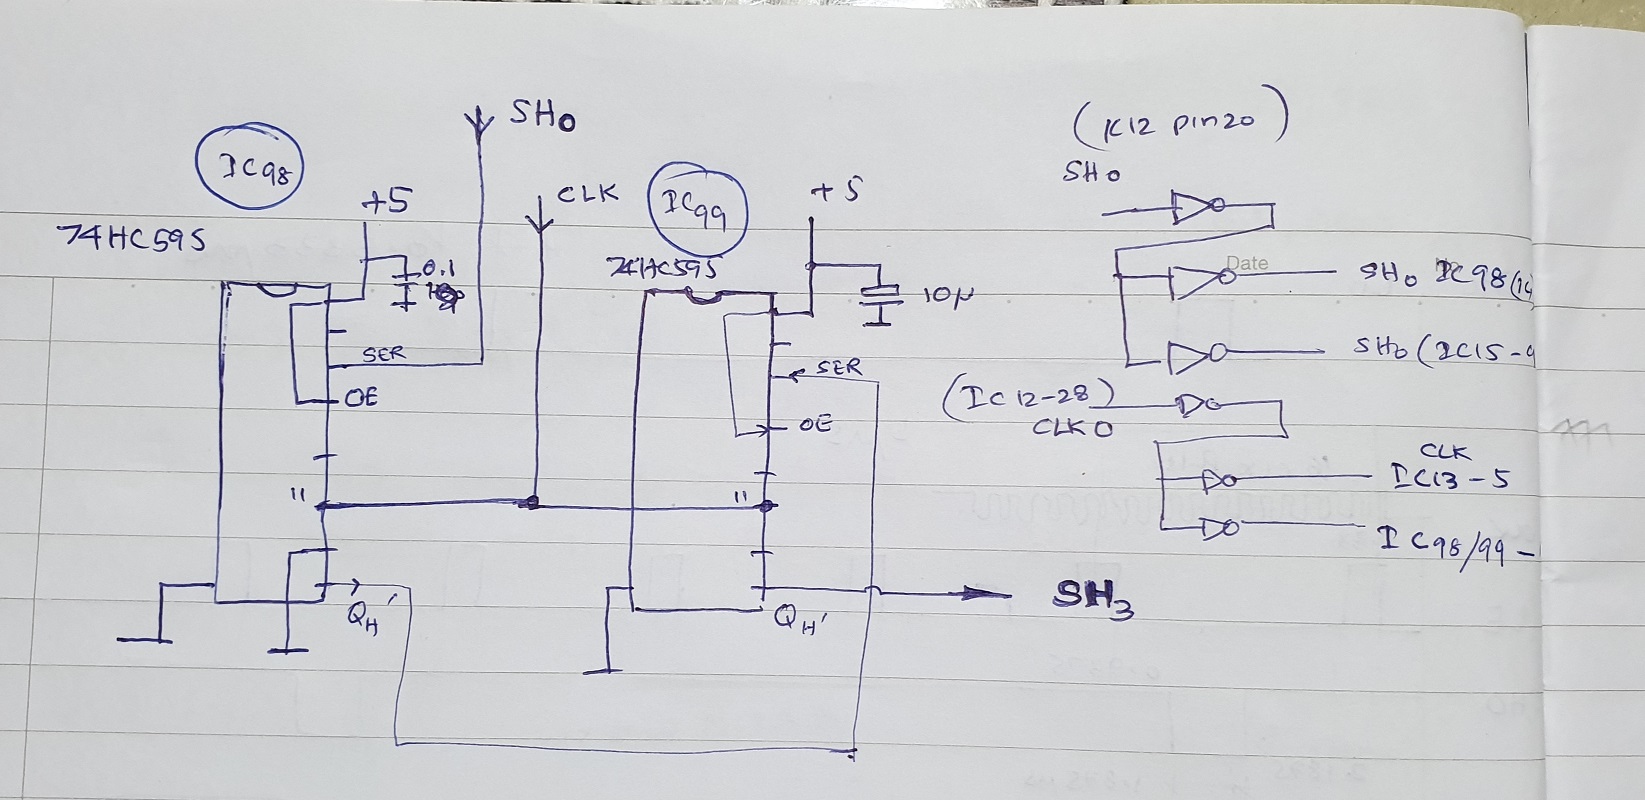 SH0
(K12 pin20)
IC98
SH0
+5
CLK
IC99
+5
74HC595
74HC595
0.1
10µ
Date
SH0 IC98(14
SER
SER
SH0 (IC15-9
OE
OE
(IC12-28)
CLK0
CLK
IC13-5
11
11
IC98/99-
QH'
QH'
SH3